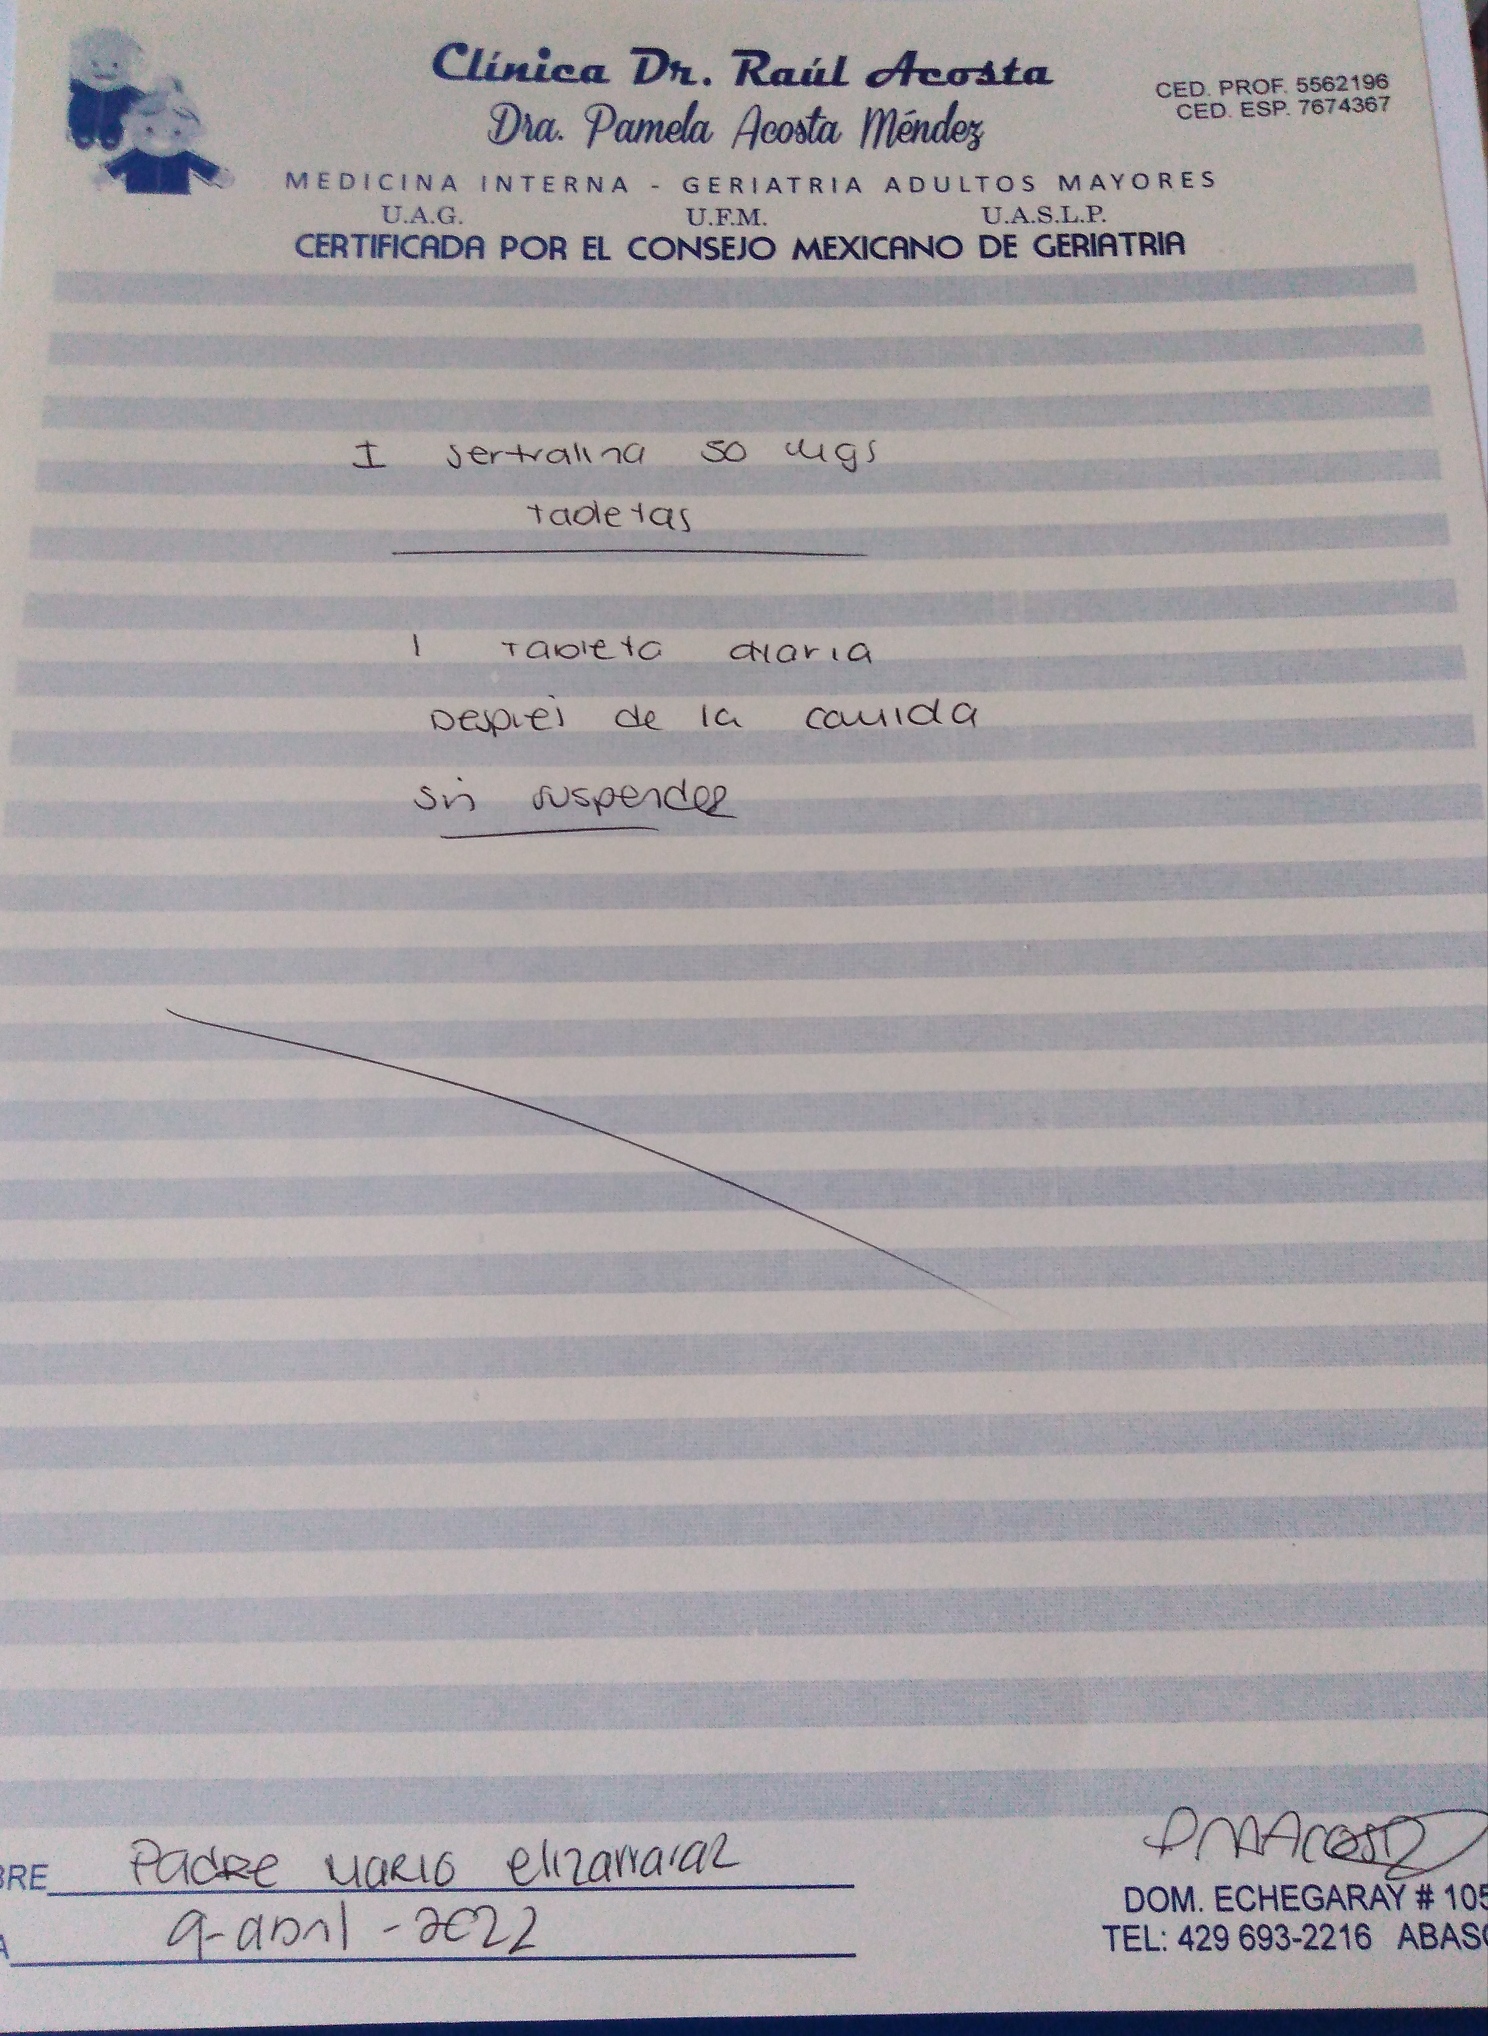 Clínica Dr. Raúl Acosta
Dra. Pamela Acosta Méndez
CED. PROF. 5562196
CED. ESP. 7674367
MEDICINA INTERNA - GERIATRIA ADULTOS MAYORES
U.A.G. U.F.M. U.A.S.L.P.
CERTIFICADA POR EL CONSEJO MEXICANO DE GERIATRIA
I sertralina 50 mgs
tabletas
1 tableta diaria
Después de la comida
sin suspender
BRE Padre Mario elizarraraz
A 9-abril-2022
PMAcosta
DOM. ECHEGARAY # 105
TEL: 429 693-2216 ABASO